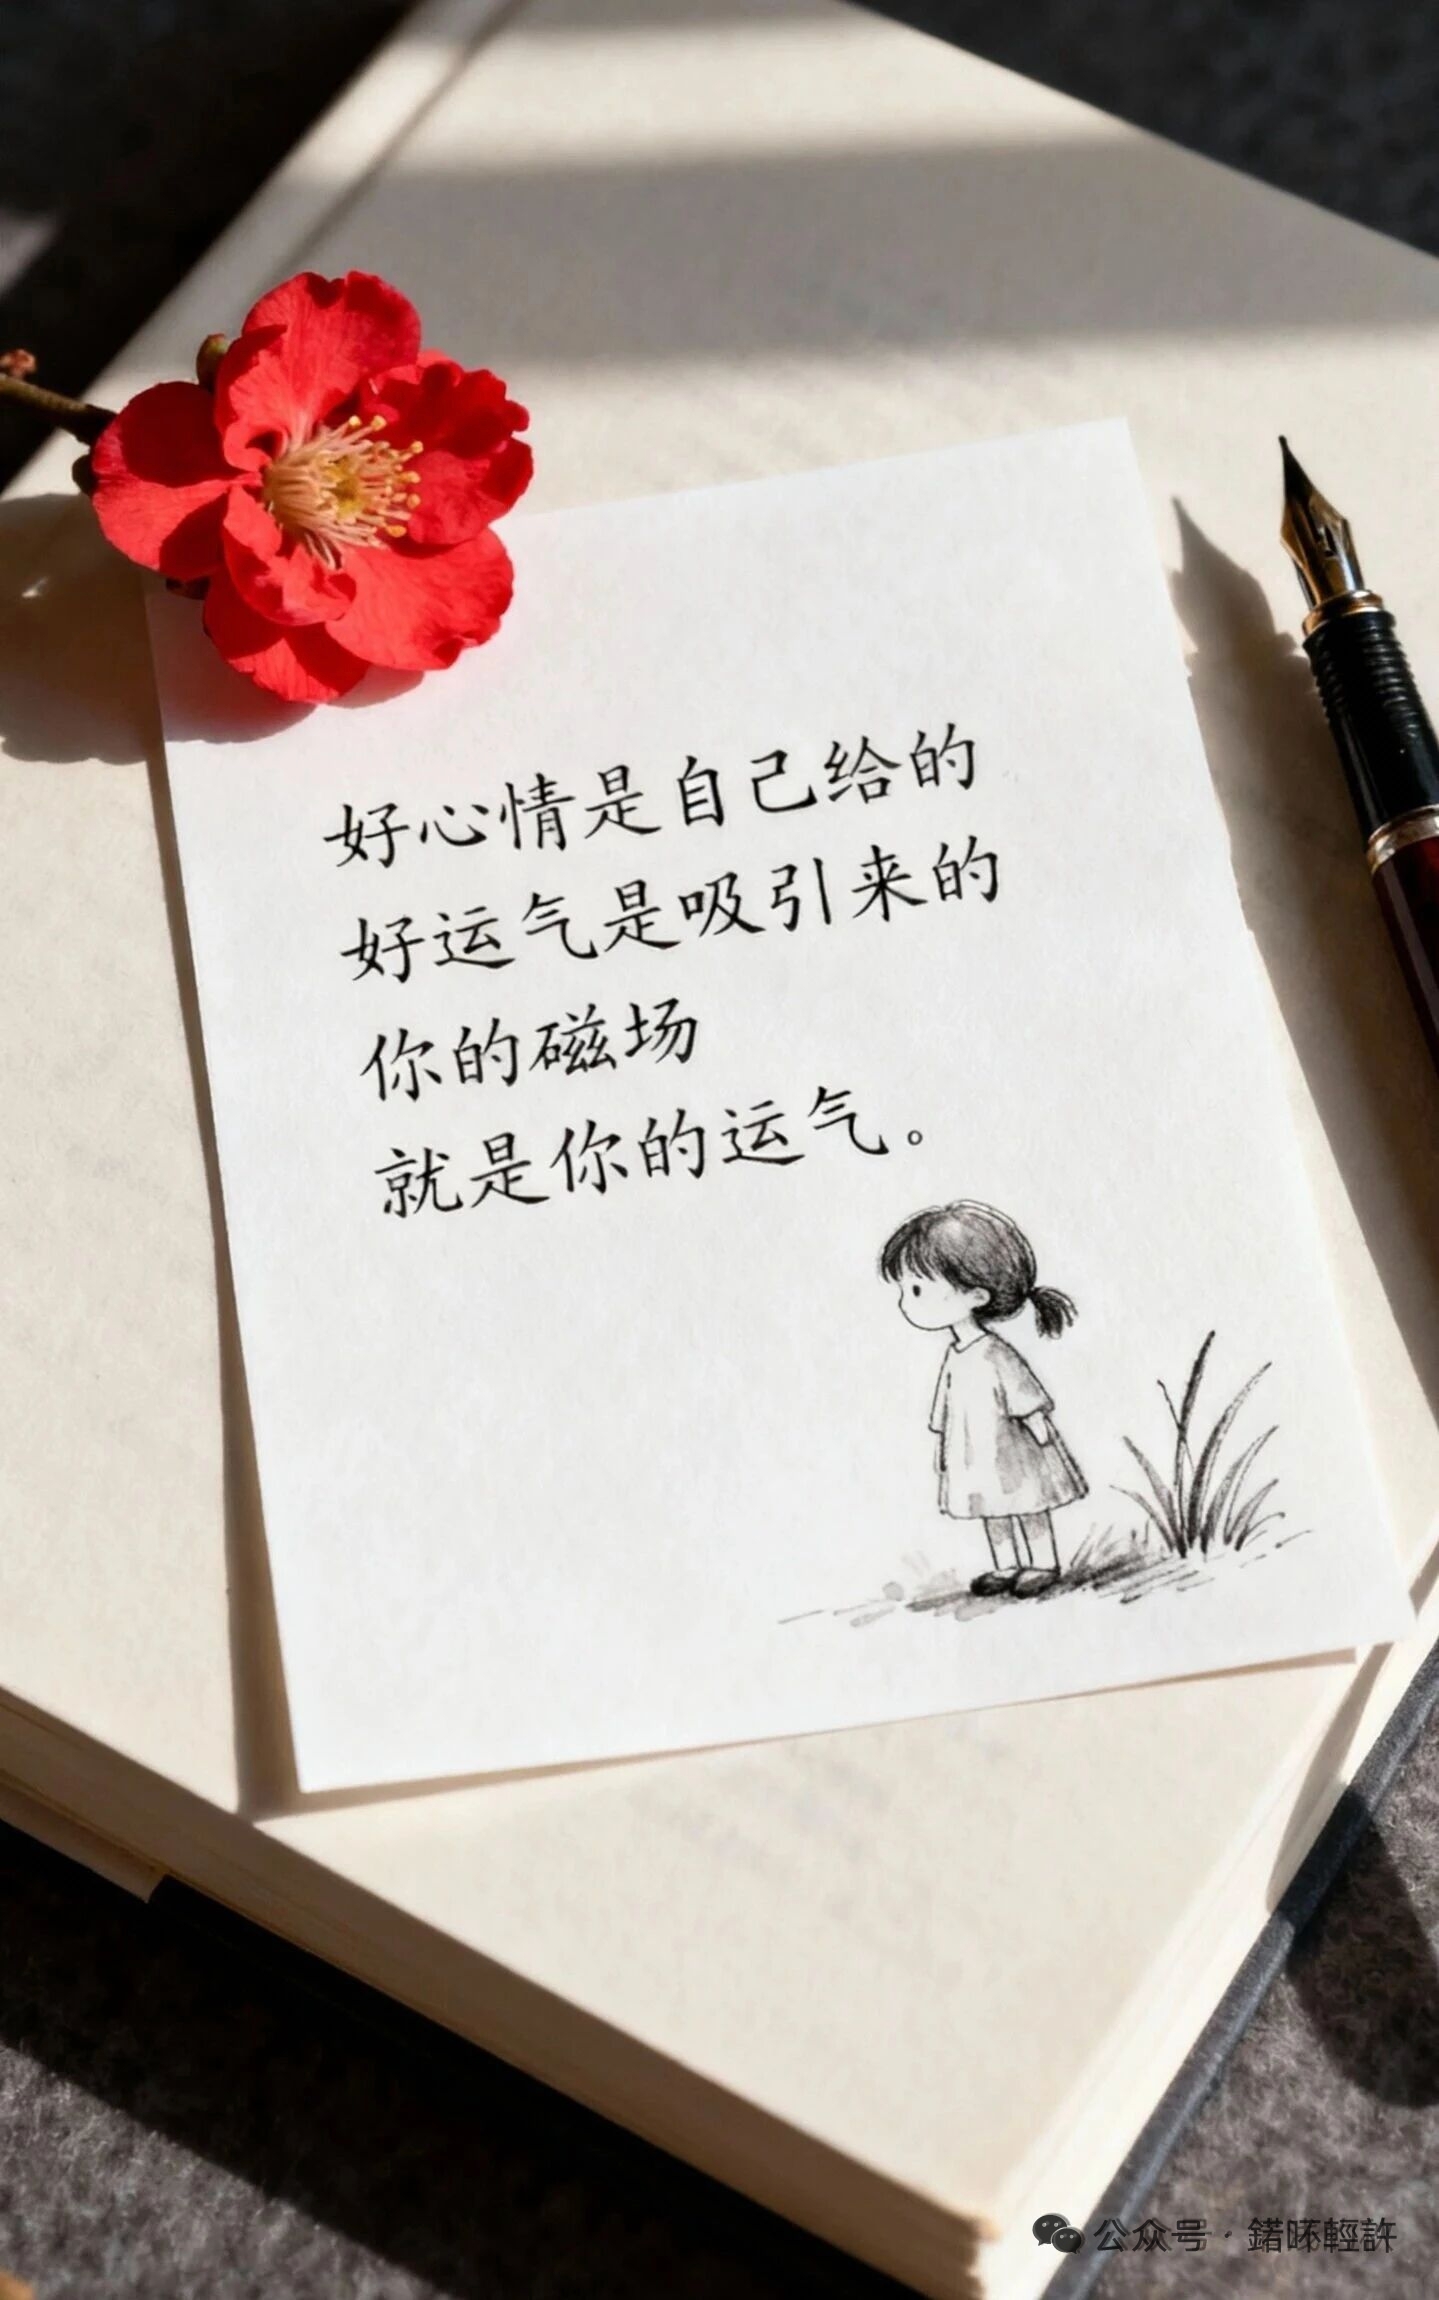 好心情是自己给的
好运气是吸引来的
你的磁场
就是你的运气。
公众号·鍩吥輕許